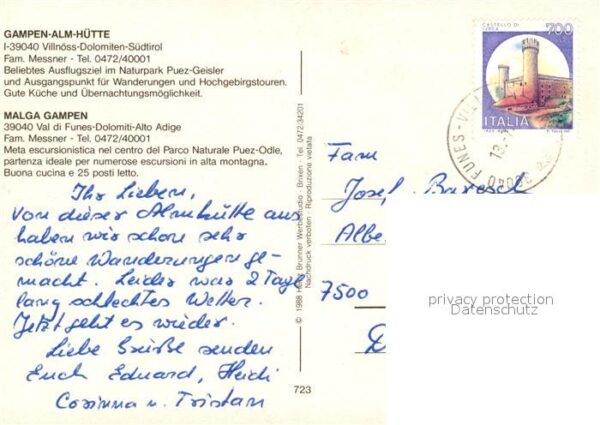 GAMPEN-ALM-HÜTTE
I-39040 Villnöss-Dolomiten-Südtirol
Fam. Messner - Tel. 0472/40001
Beliebtes Ausflugsziel im Naturpark Puez-Geisler
und Ausgangspunkt für Wanderungen und Hochgebirgstouren.
Gute Küche und Übernachtungsmöglichkeit.
MALGA GAMPEN
39040 Val di Funes-Dolomiti-Alto Adige
Fam. Messner - Tel. 0472/40001
Meta escursionistica nel centro del Parco Naturale Puez-Odle,
partenza ideale per numerose escursioni in alta montagna.
Buona cucina e 25 posti letto.
Ihr Lieben,
Von dieser Almhütte aus
haben wir schon sehr
schöne Wanderungen ge-
macht. Leider war 2 Tage
lang schlechtes Wetter.
Jetzt geht es wieder.
Liebe Grüße senden
Euch Eduard, Heidi
Corinna u. Tristan
© 1988 Heinz Brunner Werbestudio - Brixen - Tel. 0472-34201
Nachdruck verboten - Riproduzione vietata
723
CASTELLO DI
IVREA
700
ITALIA
39040 FUNES-VI
Fam
Josef
Albe
7500
D
privacy protection
Datenschutz